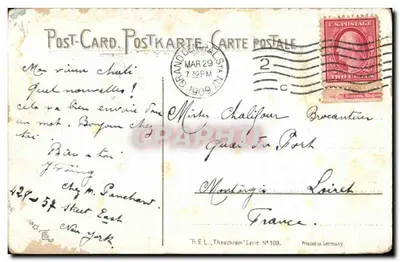 POST-CARD. POSTKARTE. CARTE POSTALE.
GRAND CENTRAL STA. N.Y.
MAR 29
7 PM
1909
2
C
U.S. POSTAGE
TWO CENTS
Mon vieux Chali
Quel nouvelles!
cela va bien envoie
un mot. Bonjour chez
toi
Bien à toi
Chez M. Panchard
428-57
Street East
New York
Mister Chalifour Brocanteur
Quai du Port
Montargis Loiret
France.
R.E.L. "Theochrom" Serie Nº 109.
Printed in Germany